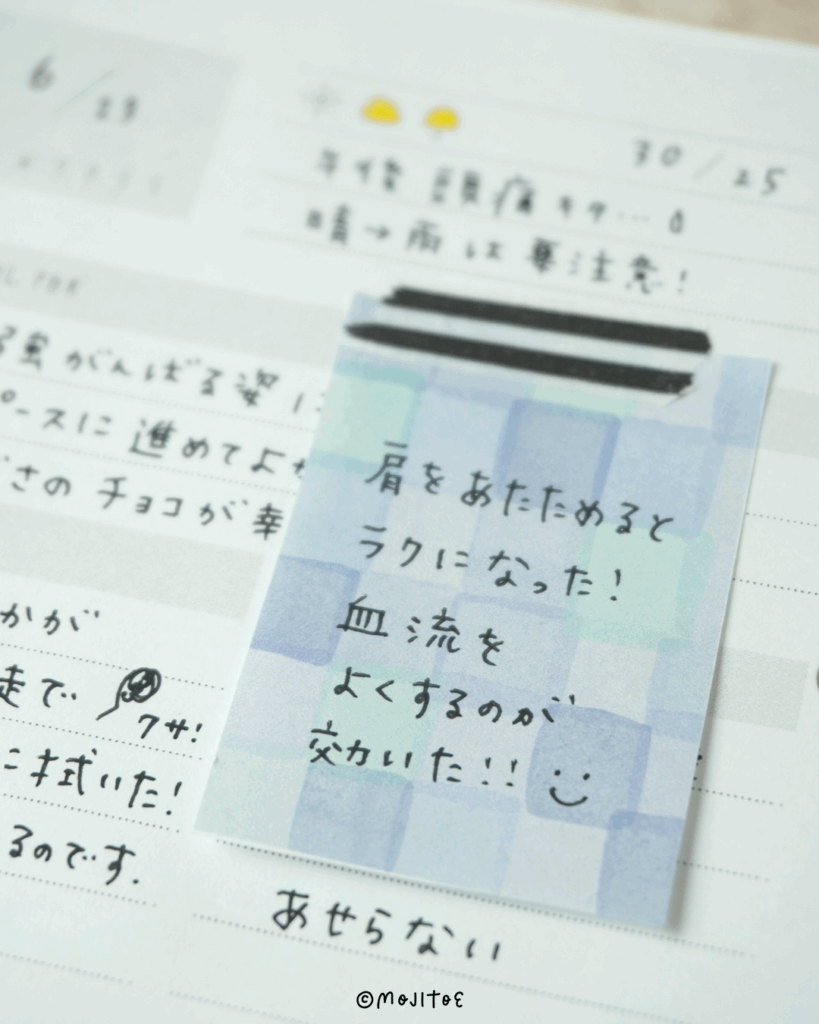 6/23
30/25
午後 頭痛
晴→雨は要注意！
がんばる姿に
ペースに進めてよか
さの チョコが幸
かが
走で
クサ！
拭いた！
るのです.
肩をあたためると
ラクになった！
血流を
よくするのが
効いた！！
あせらない
©MOJITOE